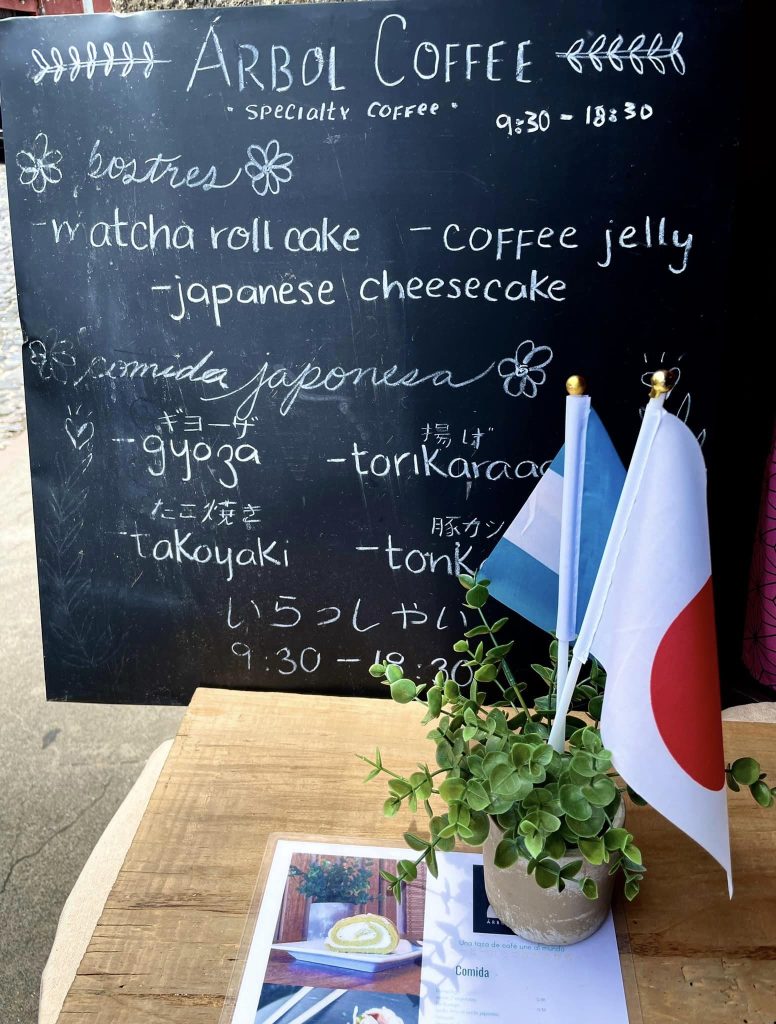 ÁRBOL COFFEE
• specialty coffee •
9:30 - 18:30
postres
- matcha roll cake - coffee jelly
- japanese cheesecake
comida japonesa
ギョーザ 揚げ
- gyoza - torikaraag
たこ焼き 豚カツ
- takoyaki - tonk
いらっしゃい
9:30 - 18:30
Una taza de café une al mundo
Comida